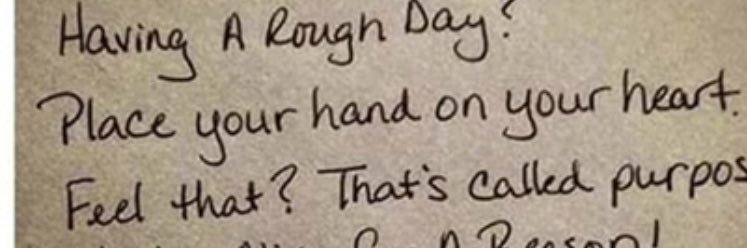 Having A Rough Day?
Place your hand on your heart.
Feel that? That's called purpos
A Reason!